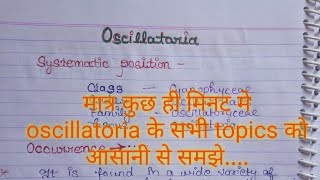 Oscillatoria
Systematic position -
Class - Cyanophyceae
मात्र कुछ ही मिनट मे
oscillatoria के सभी topics को
आसानी से समझे....
Occurrence
It is found in a wide variety of